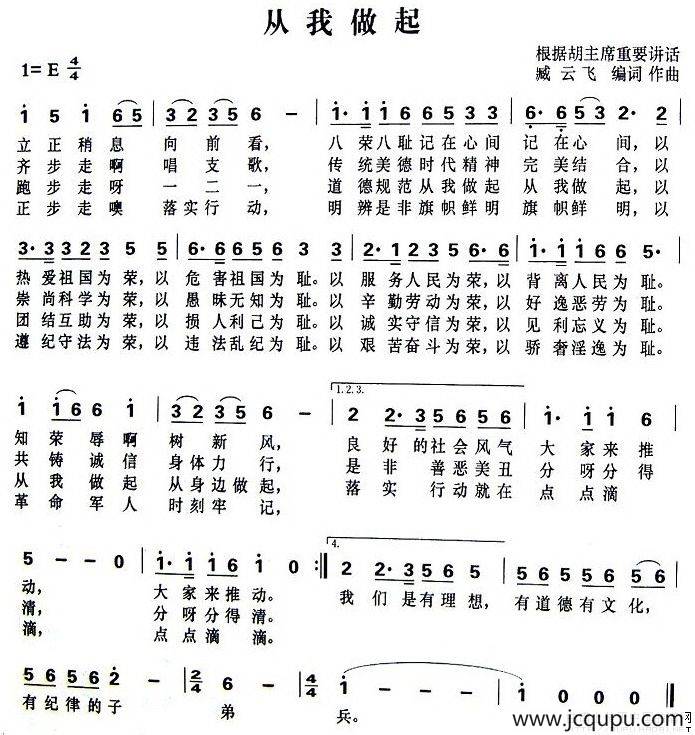 从我做起
根据胡主席重要讲话
1= E 4/4
臧云飞 编词 作曲
i 5 i (6 5) | 3 2 3 5 6 − | i· i i i 6 i 2 3 | 6· 6 5 3 i i·
立正稍息 向前看， 八荣八耻记在心间 记在心间，以
齐步走啊 唱支歌， 传统美德时代精神 完美结合，以
跑步走呀 一二一， 道德规范从我做起 从我做起，以
正步走噢 落实行动， 明辨是非旗帜鲜明 旗帜鲜明，以
热爱祖国为荣，以 危害祖国为耻。以 服务人民为荣，以 背离人民为耻。
崇尚科学为荣，以 愚昧无知为耻。以 辛勤劳动为荣，以 好逸恶劳为耻。
团结互助为荣，以 损人利己为耻。以 诚实守信为荣，以 见利忘义为耻。
遵纪守法为荣，以 违法乱纪为耻。以 艰苦奋斗为荣，以 骄奢淫逸为耻。
1.2.3.
知荣辱啊 树新风， 良好的社会风气 大家来推
共铸诚信 身体力行， 是非善恶美丑 分呀分得
从我做起 从身边做起， 落实行动就在 点点滴
革命军人 时刻牢记，
4.
5 − − 0 | i· i i 6 i 0 :| 2 2· 3 5 6 5 | 5 6 5 6 5 (5 6)
动， 大家来推动。 我们是有理想，有道德有文化，
清， 分呀分得清。
滴， 点点滴滴。
5 6 5 6 2 − | 2/4 6 − | 4/4 i − − − | i 0 0 0
有纪律的子 弟 兵。
www.jcqupu.com